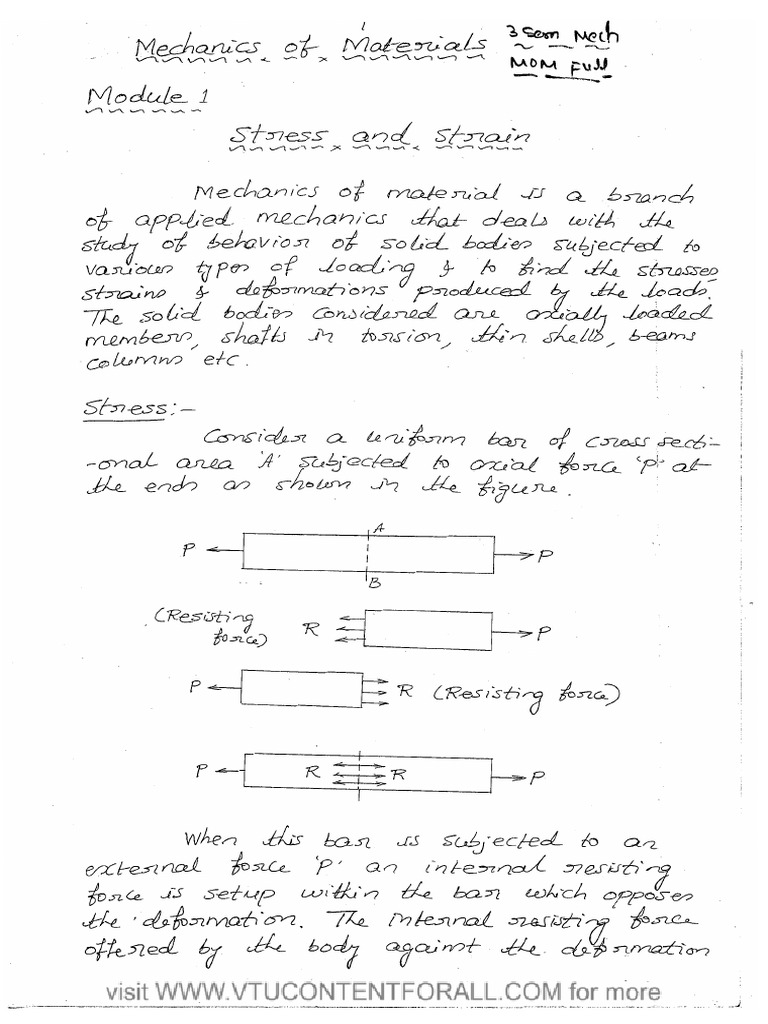 1
Mechanics of Materials
3 Sem Mech
MOM Full
Module 1
Stress and Strain
Mechanics of material is a branch
of applied mechanics that deals with the
study of behavior of solid bodies subjected to
various types of loading & to find the stresses,
strains & deformations produced by the loads.
The solid bodies considered are axially loaded
members, shafts in torsion, thin shells, beams
columns etc.
Stress:-
Consider a uniform bar of cross secti-
-onal area 'A' subjected to axial force 'P' at
the ends as shown in the figure.
A
P P
B
(Resisting
force) R P
P R (Resisting force)
P R R P
When this bar is subjected to an
external force 'P' an internal resisting
force is setup within the bar which opposes
the deformation. The internal resisting force
offered by the body against the deformation
visit WWW.VTUCONTENTFORALL.COM for more